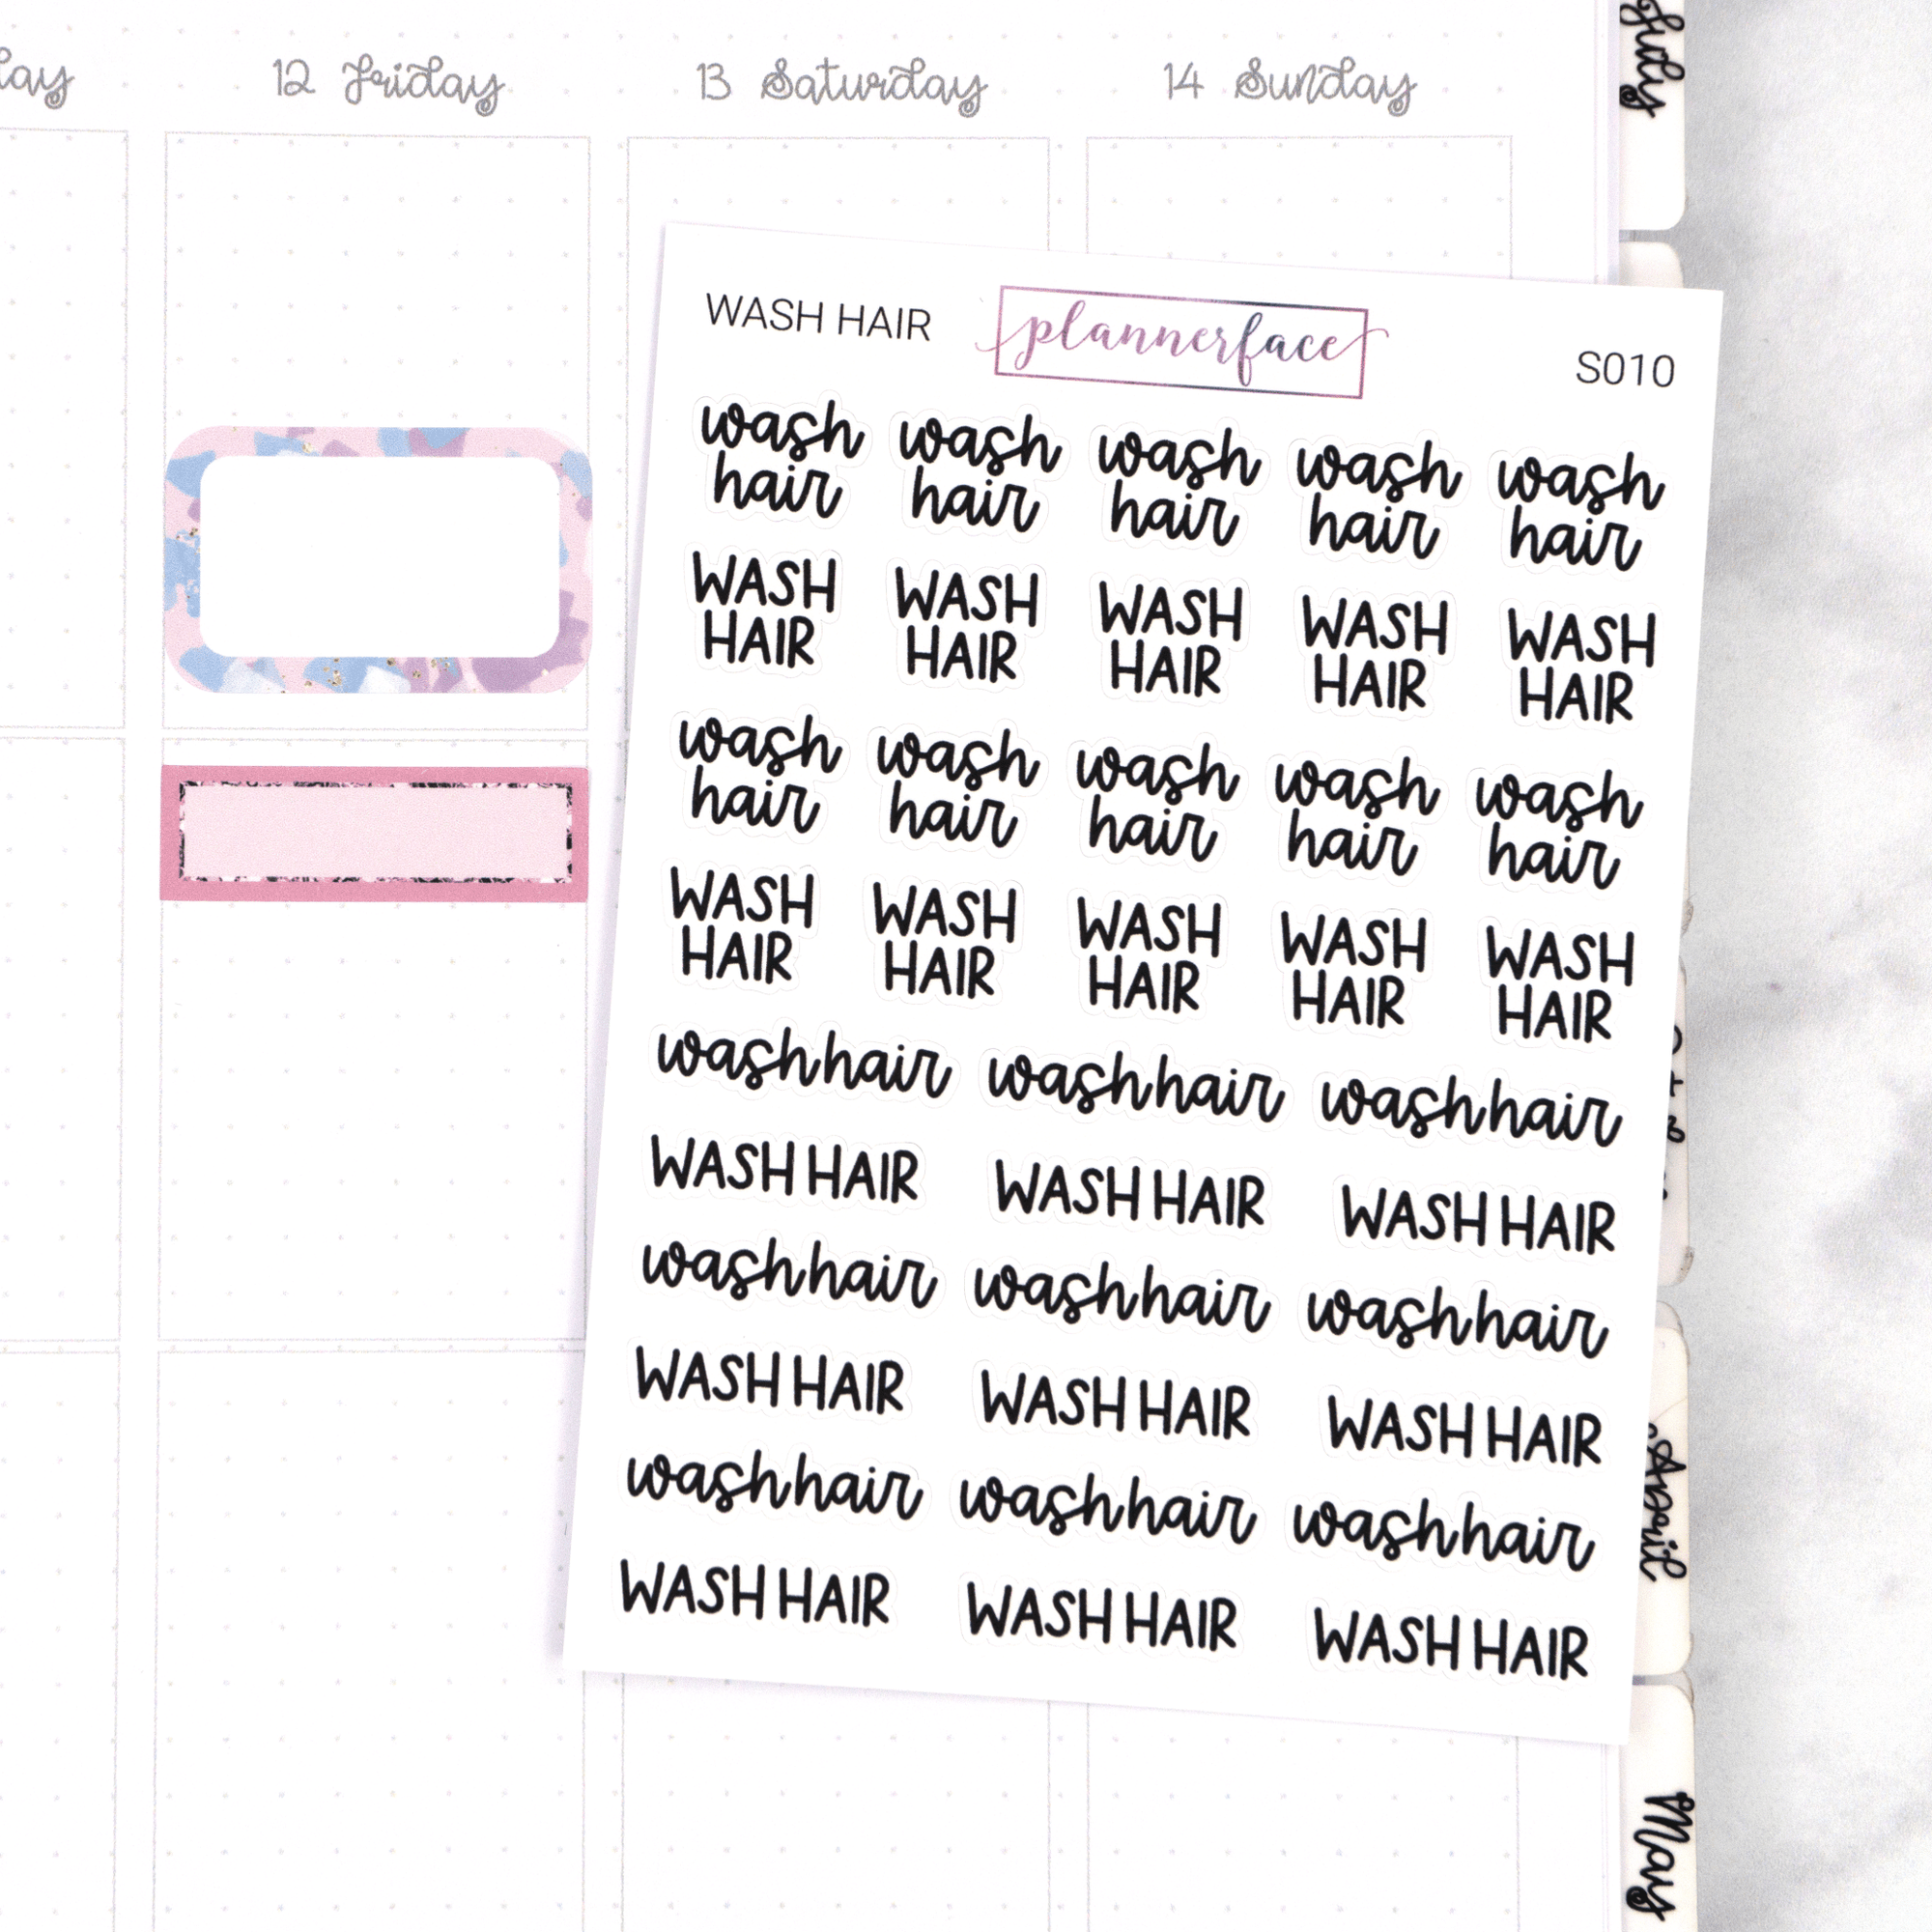 12 Friday 13 Saturday 14 Sunday
July
WASH HAIR plannerface S010
wash hair wash hair wash hair wash hair wash hair
WASH HAIR WASH HAIR WASH HAIR WASH HAIR WASH HAIR
wash hair wash hair wash hair wash hair wash hair
WASH HAIR WASH HAIR WASH HAIR WASH HAIR WASH HAIR
wash hair wash hair wash hair
WASH HAIR WASH HAIR WASH HAIR
wash hair wash hair wash hair
WASH HAIR WASH HAIR WASH HAIR
wash hair wash hair wash hair
WASH HAIR WASH HAIR WASH HAIR
April
May